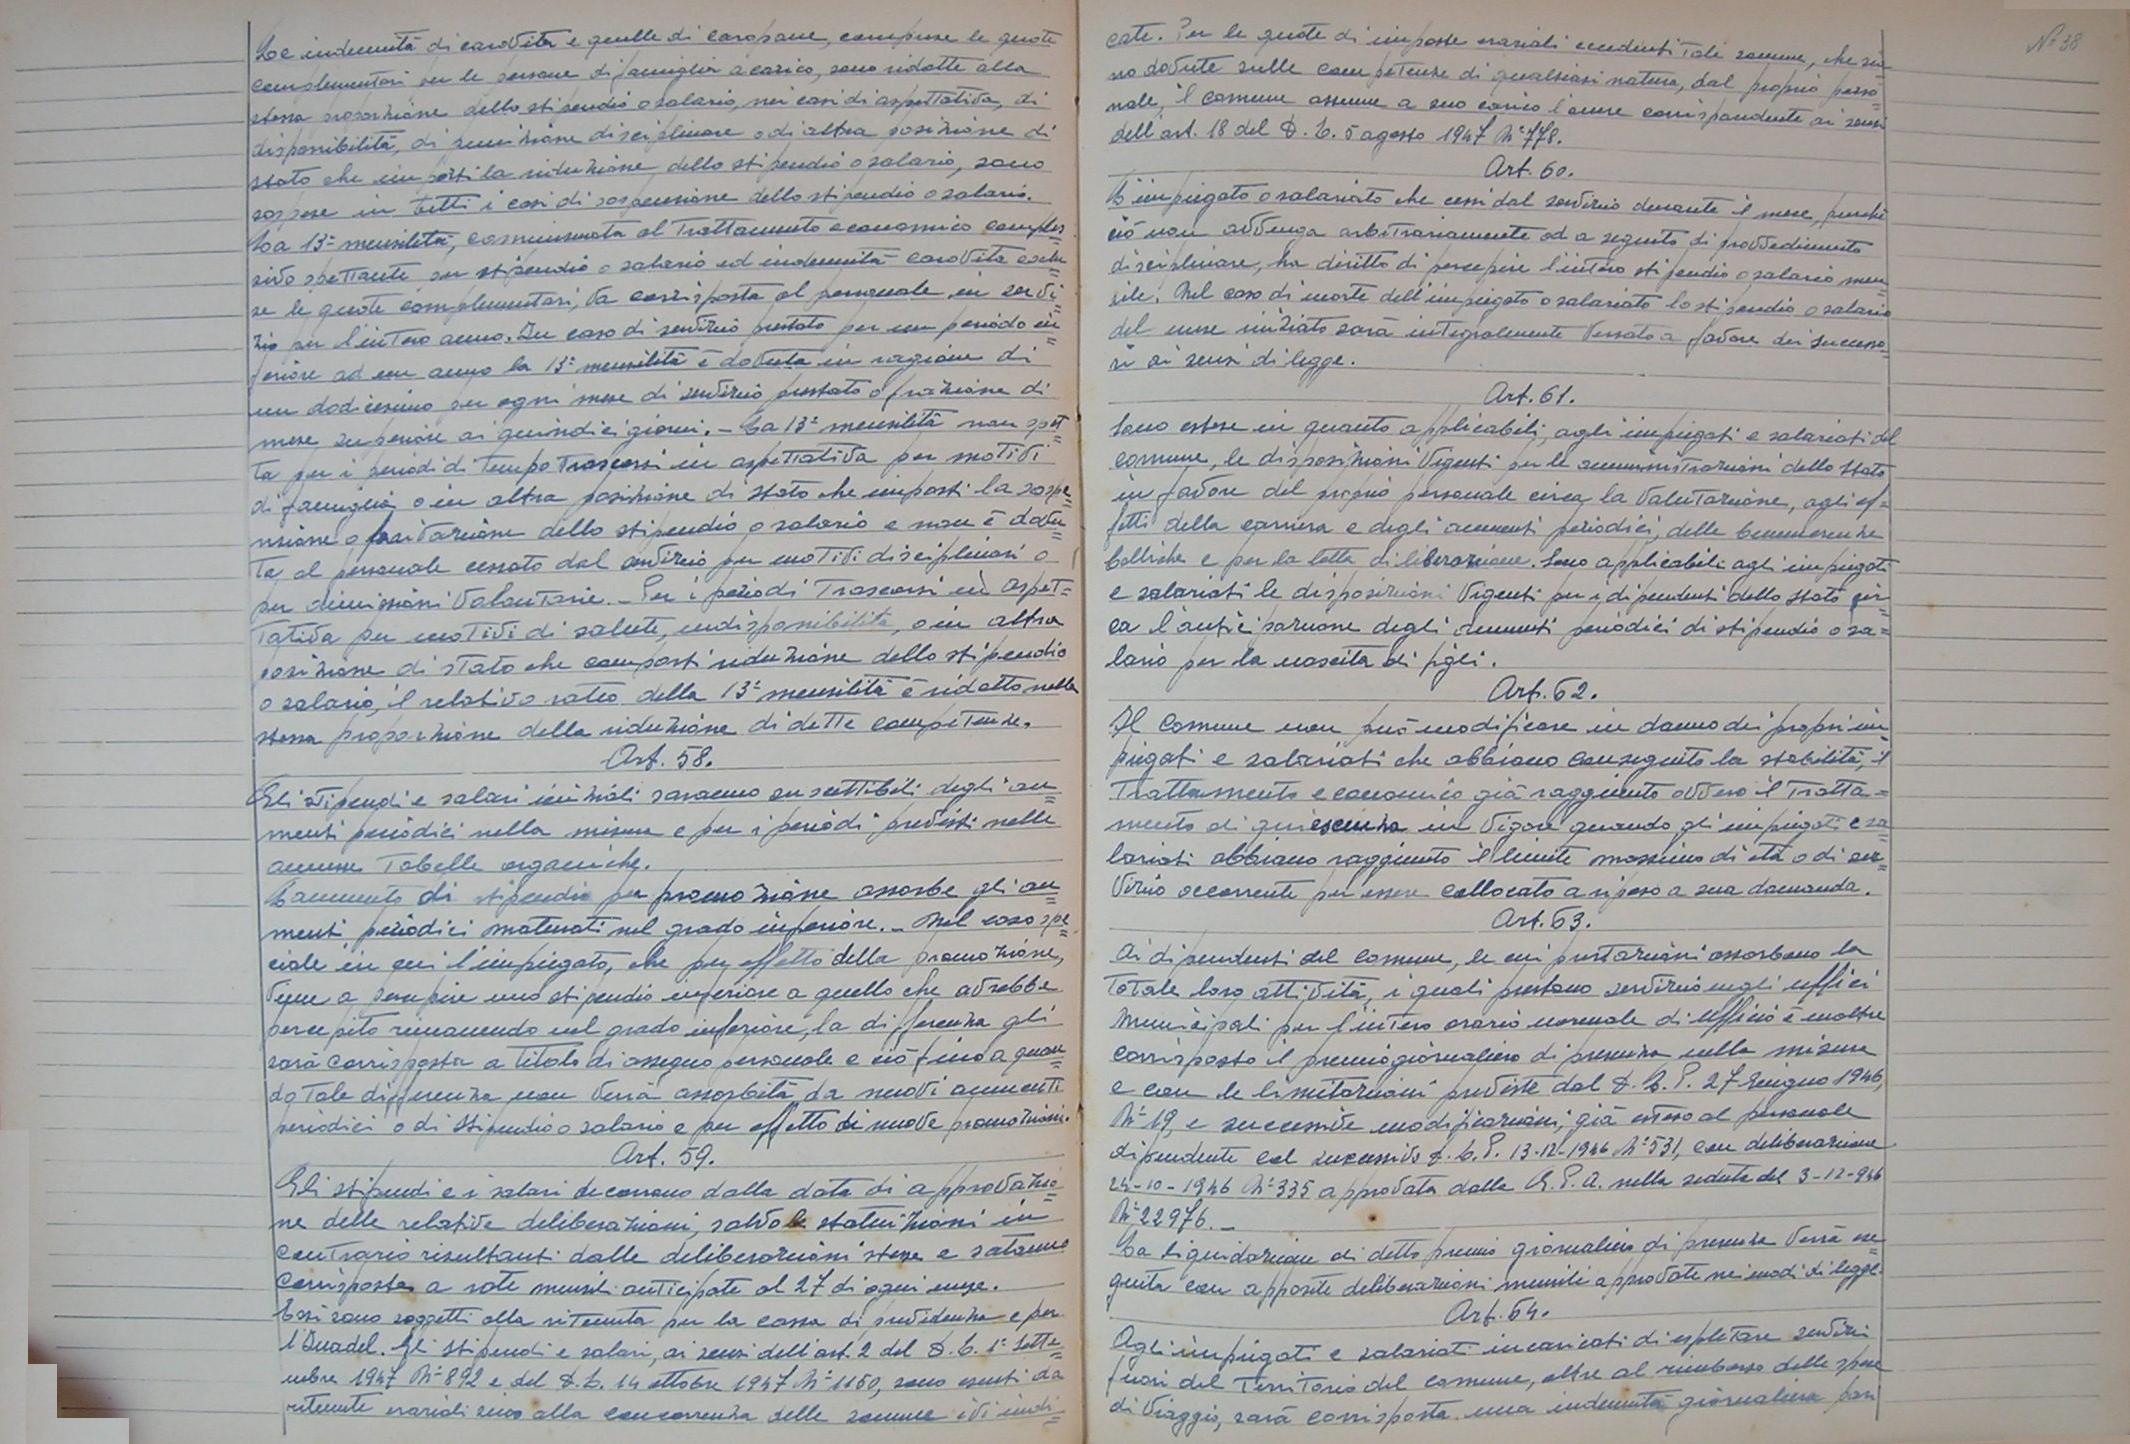 Le indennità di carovita e quelle di caropane, comprese le quote
complementari per le persone di famiglia a carico, sono ridotte alla
stessa proporzione dello stipendio o salario, nei casi di aspettativa, di
disponibilità, di punizione disciplinare o di altra posizione di
stato che importi la riduzione dello stipendio o salario, sono
sospese in tutti i casi di sospensione dello stipendio o salario.
La 13ª mensilità, commisurata al trattamento economico comples=
sivo spettante per stipendio o salario ed indennità carovita esclu=
se le quote complementari, va corrisposta al personale in servi=
zio per l'intero anno. In caso di servizio prestato per un periodo in=
feriore ad un anno la 13ª mensilità è dovuta in ragione di
un dodicesimo per ogni mese di servizio prestato o frazione di
mese superiore ai quindici giorni. - La 13ª mensilità non spet=
ta per i periodi di tempo trascorsi in aspettativa per motivi
di famiglia o in altra posizione di stato che importi la sospe=
nsione o privazione dello stipendio o salario e non è dovu=
ta al personale cessato dal servizio per motivi disciplinari o
per dimissioni volontarie. - Per i periodi trascorsi in aspet=
tativa per motivi di salute, indisponibilità, o in altra
posizione di stato che comporti riduzione dello stipendio
o salario, il relativo rateo della 13ª mensilità è ridotto nella
stessa proporzione della riduzione di dette competenze.
Art. 58.
Gli stipendi e salari iniziali saranno suscettibili degli au=
menti periodici nella misura e per i periodi previsti nelle
annesse tabelle organiche.
L'aumento di stipendio per promozione assorbe gli au=
menti periodici maturati nel grado inferiore. - Nel caso spe=
ciale in cui l'impiegato, che per effetto della promozione,
viene a percepire uno stipendio inferiore a quello che avrebbe
percepito rimanendo nel grado inferiore, la differenza gli
sarà corrisposta a titolo di assegno personale e ciò fino a quan=
do tale differenza non verrà assorbita da nuovi aumenti
periodici o di stipendio o salario e per effetto di nuove promozioni.
Art. 59.
Gli stipendi e i salari decorrono dalla data di approvazio=
ne delle relative deliberazioni, salvo le statuizioni in
contrario risultanti dalle deliberazioni stesse e saranno
corrisposti a rate mensili anticipate al 27 di ogni mese.
Essi sono soggetti alla ritenuta per la cassa di previdenza e per
l'Inadel. Gli stipendi e salari, ai sensi dell'art. 2 del D. L. 1° sette=
mbre 1947 N° 892 e del D. L. 14 ottobre 1947 N° 1150, sono esenti da
ritenute erariali sino alla concorrenza delle somme ivi indi=
N° 38
cate. Per le quote di imposte erariali eccedenti tale somme, che sia=
no dovute sulle competenze di qualsiasi natura, dal proprio perso=
nale, il comune assume a suo carico l'onere corrispondente ai sensi
dell'art. 18 del D. L. 5 agosto 1947 N° 778.
Art. 60.
L'impiegato o salariato che cessi dal servizio durante il mese, purché
ciò non avvenga arbitrariamente od a seguito di provvedimento
disciplinare, ha diritto di percepire l'intero stipendio o salario men=
sile. Nel caso di morte dell'impiegato o salariato lo stipendio o salario
del mese iniziato sarà integralmente versato a favore dei successo=
ri ai sensi di legge.
Art. 61.
Sono estese in quanto applicabili, agli impiegati e salariati del
comune, le disposizioni vigenti per le amministrazioni dello Stato
in favore del proprio personale circa la valutazione, agli ef=
fetti della carriera e degli aumenti periodici, delle benemerenze
belliche e per la lotta di liberazione. Sono applicabili agli impiegati
e salariati le disposizioni vigenti per i dipendenti dello Stato cir=
ca l'anticipazione degli aumenti periodici di stipendio o sa=
lario per la nascita di figli.
Art. 62.
Il comune non può modificare in danno dei propri im=
piegati e salariati che abbiano conseguito la stabilità, il
trattamento economico già raggiunto ovvero il tratta=
mento di quiescenza in vigore quando gli impiegati e sa=
lariati abbiano raggiunto il limite massimo di età o di ser=
vizio occorrente per essere collocato a riposo a sua domanda.
Art. 63.
Ai dipendenti del comune, le cui prestazioni assorbono la
totale loro attività, i quali prestano servizio negli uffici
municipali per l'intero orario normale di ufficio è inoltre
corrisposto il premio giornaliero di presenza nella misura
e con le limitazioni previste dal D. L. P. 27 Giugno 1946,
N° 19, e successive modificazioni, già esteso al personale
dipendente col successivo D. L. P. 13-12-1946 N° 531, con deliberazione
24-10-1946 N° 335 approvata dalla G. P. A. nella seduta del 3-12-946
N° 22976. -
La liquidazione di detto premio giornaliero di presenza verrà ese=
guita con apposite deliberazioni mensili approvate nei modi di legge.
Art. 64.
Agli impiegati e salariati incaricati di espletare servizi
fuori del territorio del comune, oltre al rimborso delle spese
di viaggio, sarà corrisposta una indennità giornaliera pari